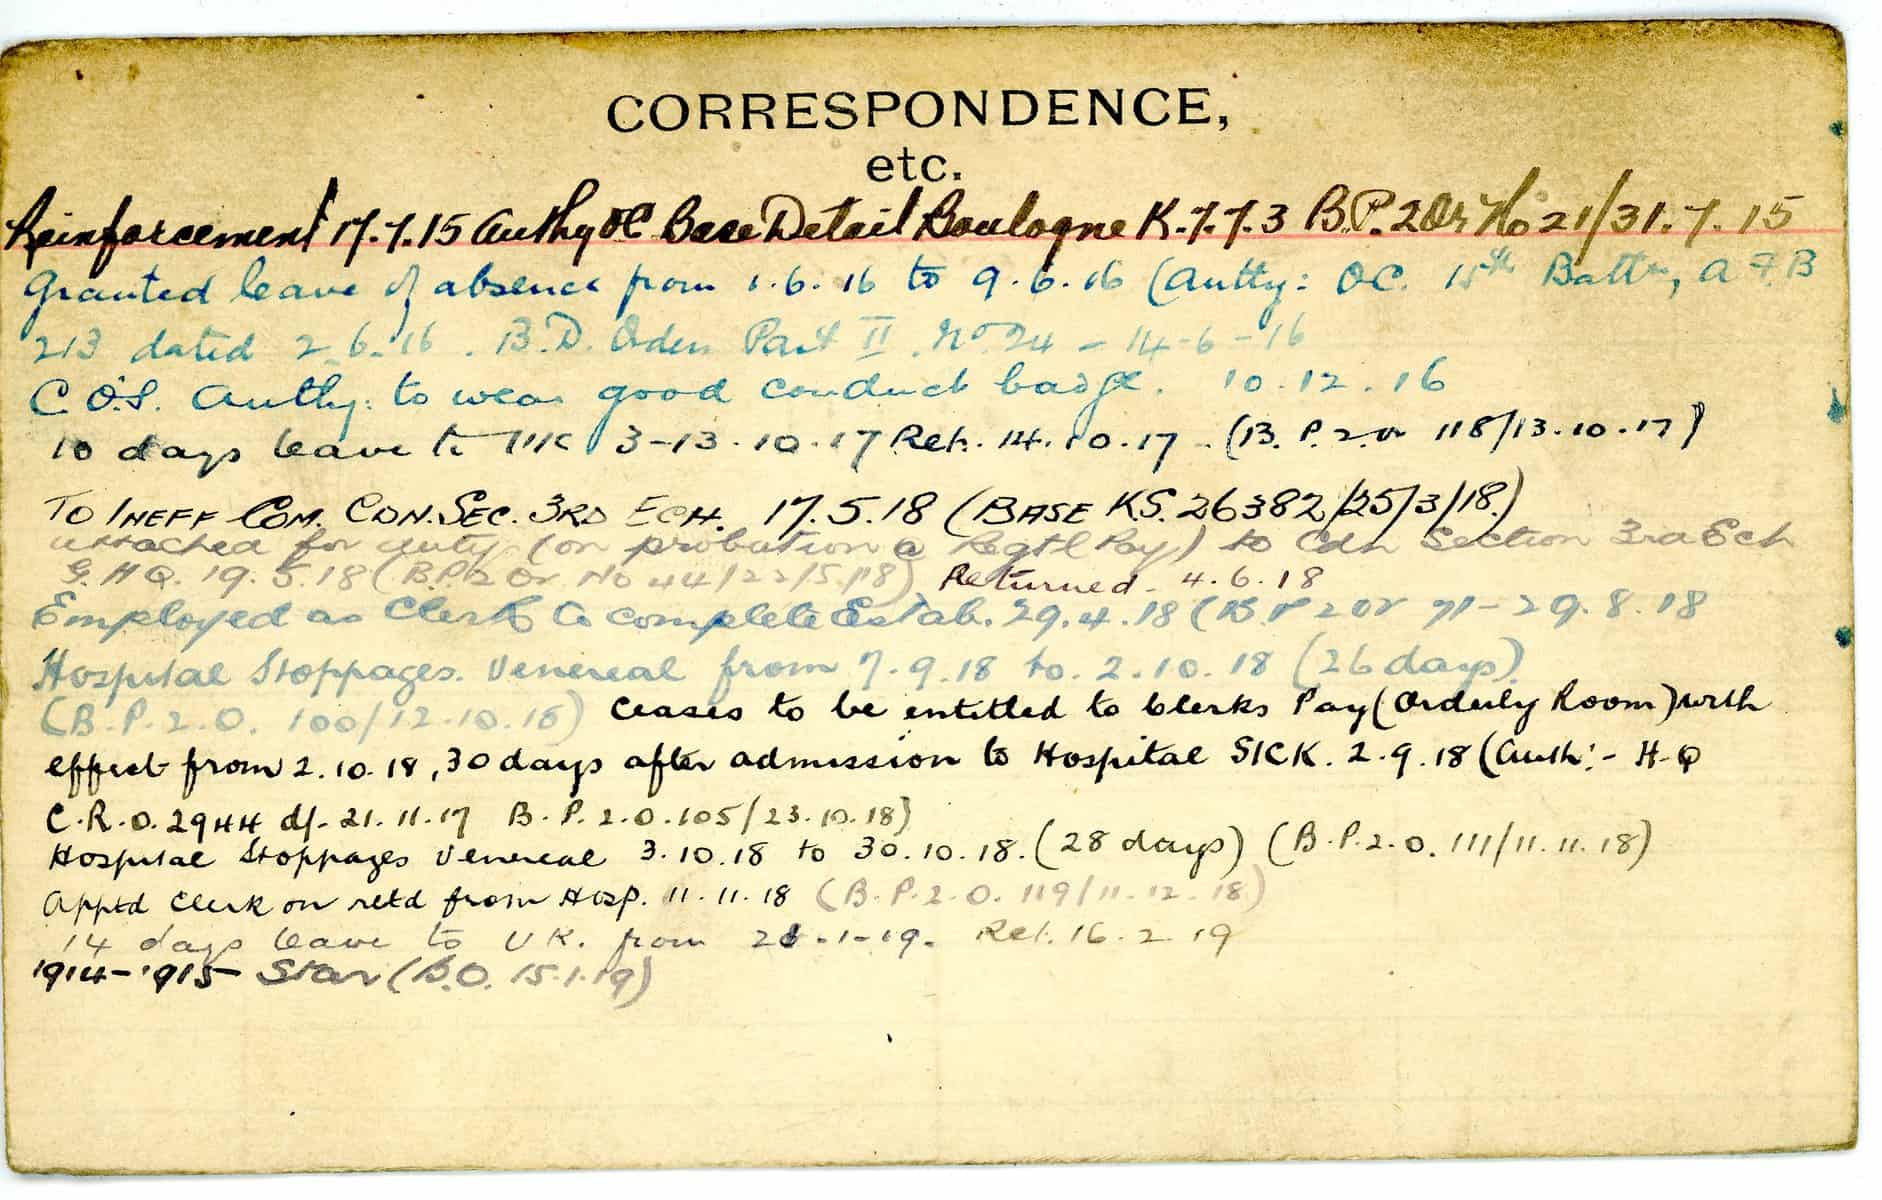 CORRESPONDENCE,
etc.
Reinforcement 17.7.15 Authy OC Base Detail Boulogne K.7.7.3 B.P.2 Or No 21/31.7.15
Granted leave of absence from 1.6.16 to 9.6.16 (Autty: OC. 15th Battn, A.F.B
213 dated 2.6.16. B.D. Orders Part II. No 24 - 14-6-16
C.O's. Authy: to wear good conduct badge. 10.12.16
10 days leave to UK 3-13.10.17 Ret. 14.10.17. (B.P.2.or 118/13.10.17)
TO INEFF COM. CDN. SEC. 3RD ECH. 17.5.18 (BASE K.S. 26382/25/3/18.)
attached for duty (on probation @ Regtl Pay) to Cdn Section 3rd Ech
G.H.Q. 19.5.18 (B.P.2 Or No 44/22/5/18) Returned. 4.6.18
Employed as Clerk to complete Estab. 29.4.18 (B P 2 or 71-29.8.18
Hospital Stoppages. Venereal from 7.9.18 to. 2.10.18 (26 days).
(B.P.2.O. 100/12.10.18) Ceases to be entitled to Clerks Pay (Orderly Room) with
effect from 2.10.18, 30 days after admission to Hospital SICK. 2.9.18 (Auth:- H.Q
C.R.O. 2944 d/- 21.11.17 B.P.2.O.105/23.10.18)
Hospital Stoppages Venereal 3.10.18 to 30.10.18. (28 days) (B.P.2.O. 111/11.11.18)
Apptd Clerk on retd from Hosp. 11.11.18 (B.P.2.O. 119/11.12.18)
14 days leave to UK. from 28-1-19. Ret. 16.2.19
1914-1915 Star (B.O. 15.1.19)